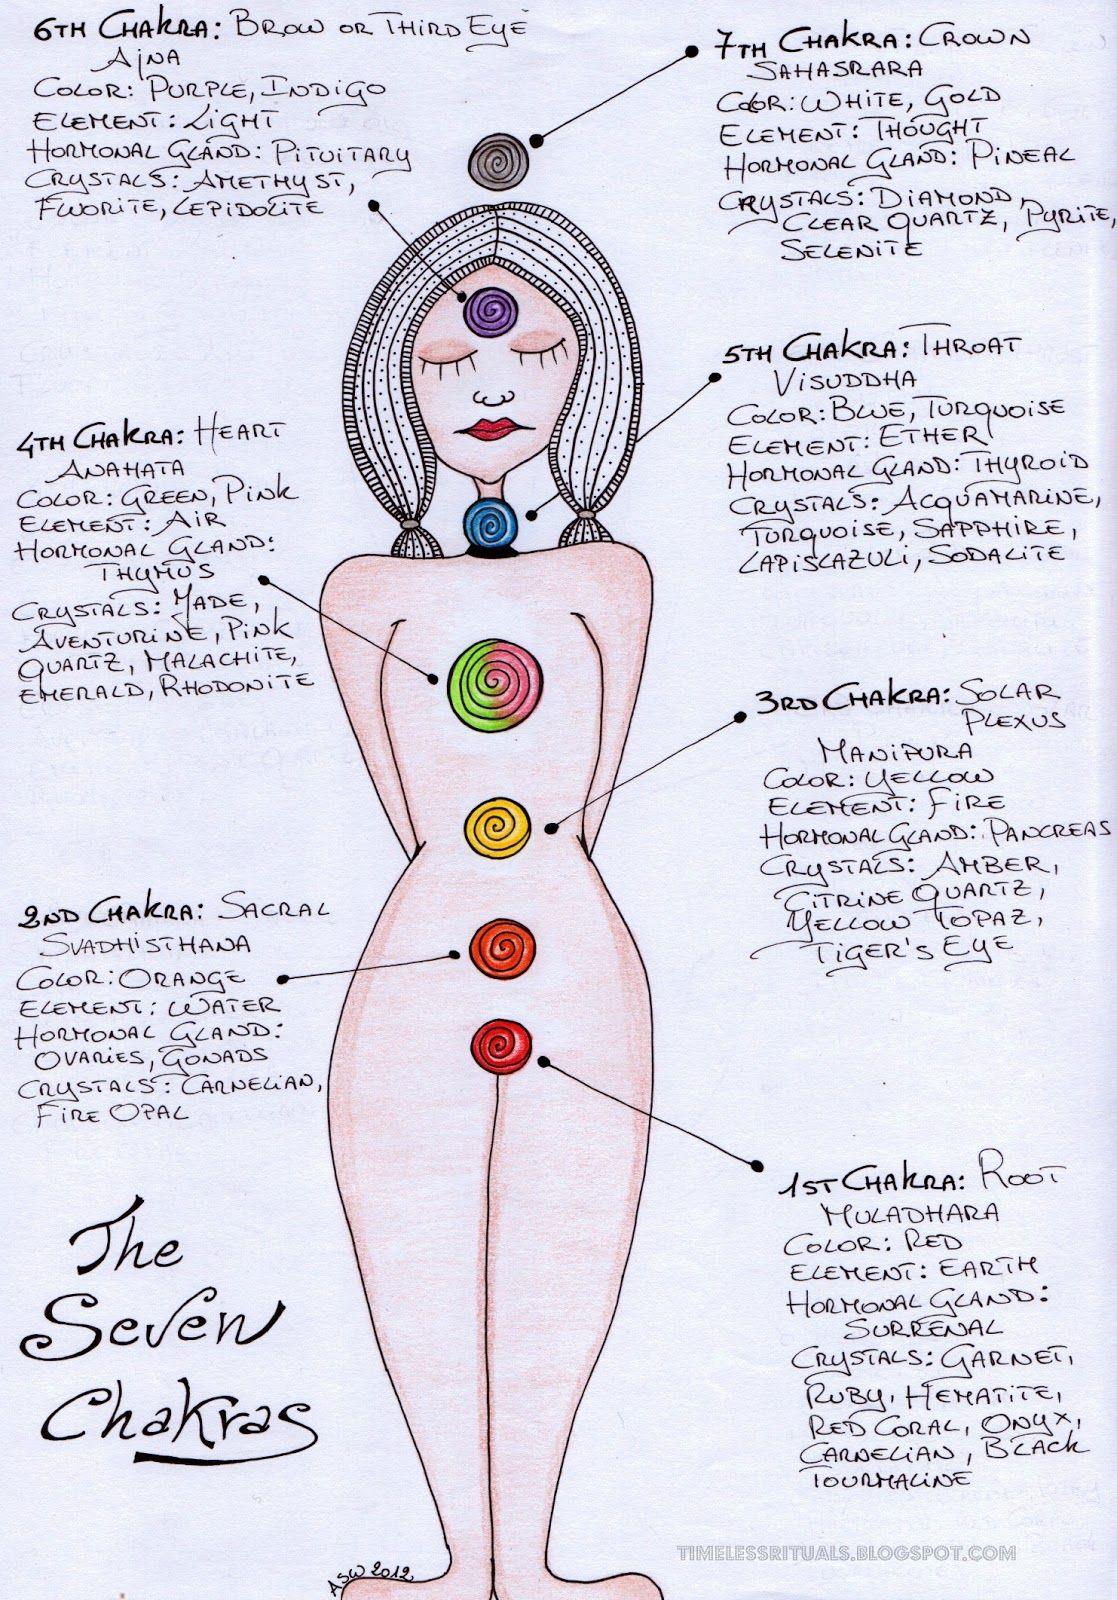 6th Chakra: Brow or Third Eye
Ajna
Color: Purple, Indigo
Element: Light
Hormonal Gland: Pituitary
Crystals: Amethyst,
Fluorite, Lepidolite
7th Chakra: Crown
Sahasrara
Color: White, Gold
Element: Thought
Hormonal Gland: Pineal
Crystals: Diamond,
Clear Quartz, Pyrite,
Selenite
5th Chakra: Throat
Visuddha
Color: Blue, Turquoise
Element: Ether
Hormonal Gland: Thyroid
Crystals: Acquamarine,
Turquoise, Sapphire,
Lapislazuli, Sodalite
4th Chakra: Heart
Anahata
Color: Green, Pink
Element: Air
Hormonal Gland:
Thymus
Crystals: Jade,
Aventurine, Pink
Quartz, Malachite,
Emerald, Rhodonite
3rd Chakra: Solar
Plexus
Manipura
Color: Yellow
Element: Fire
Hormonal Gland: Pancreas
Crystals: Amber,
Citrine Quartz,
Yellow Topaz,
Tiger's Eye
2nd Chakra: Sacral
Svadhisthana
Color: Orange
Element: Water
Hormonal Gland:
Ovaries, Gonads
Crystals: Carnelian,
Fire Opal
1st Chakra: Root
Muladhara
Color: Red
Element: Earth
Hormonal Gland:
Surrenal
Crystals: Garnet,
Ruby, Hematite,
Red Coral, Onyx,
Carnelian, Black
Tourmaline
The
Seven
Chakras
ASW 2012
TIMELESSRITUALS.BLOGSPOT.COM